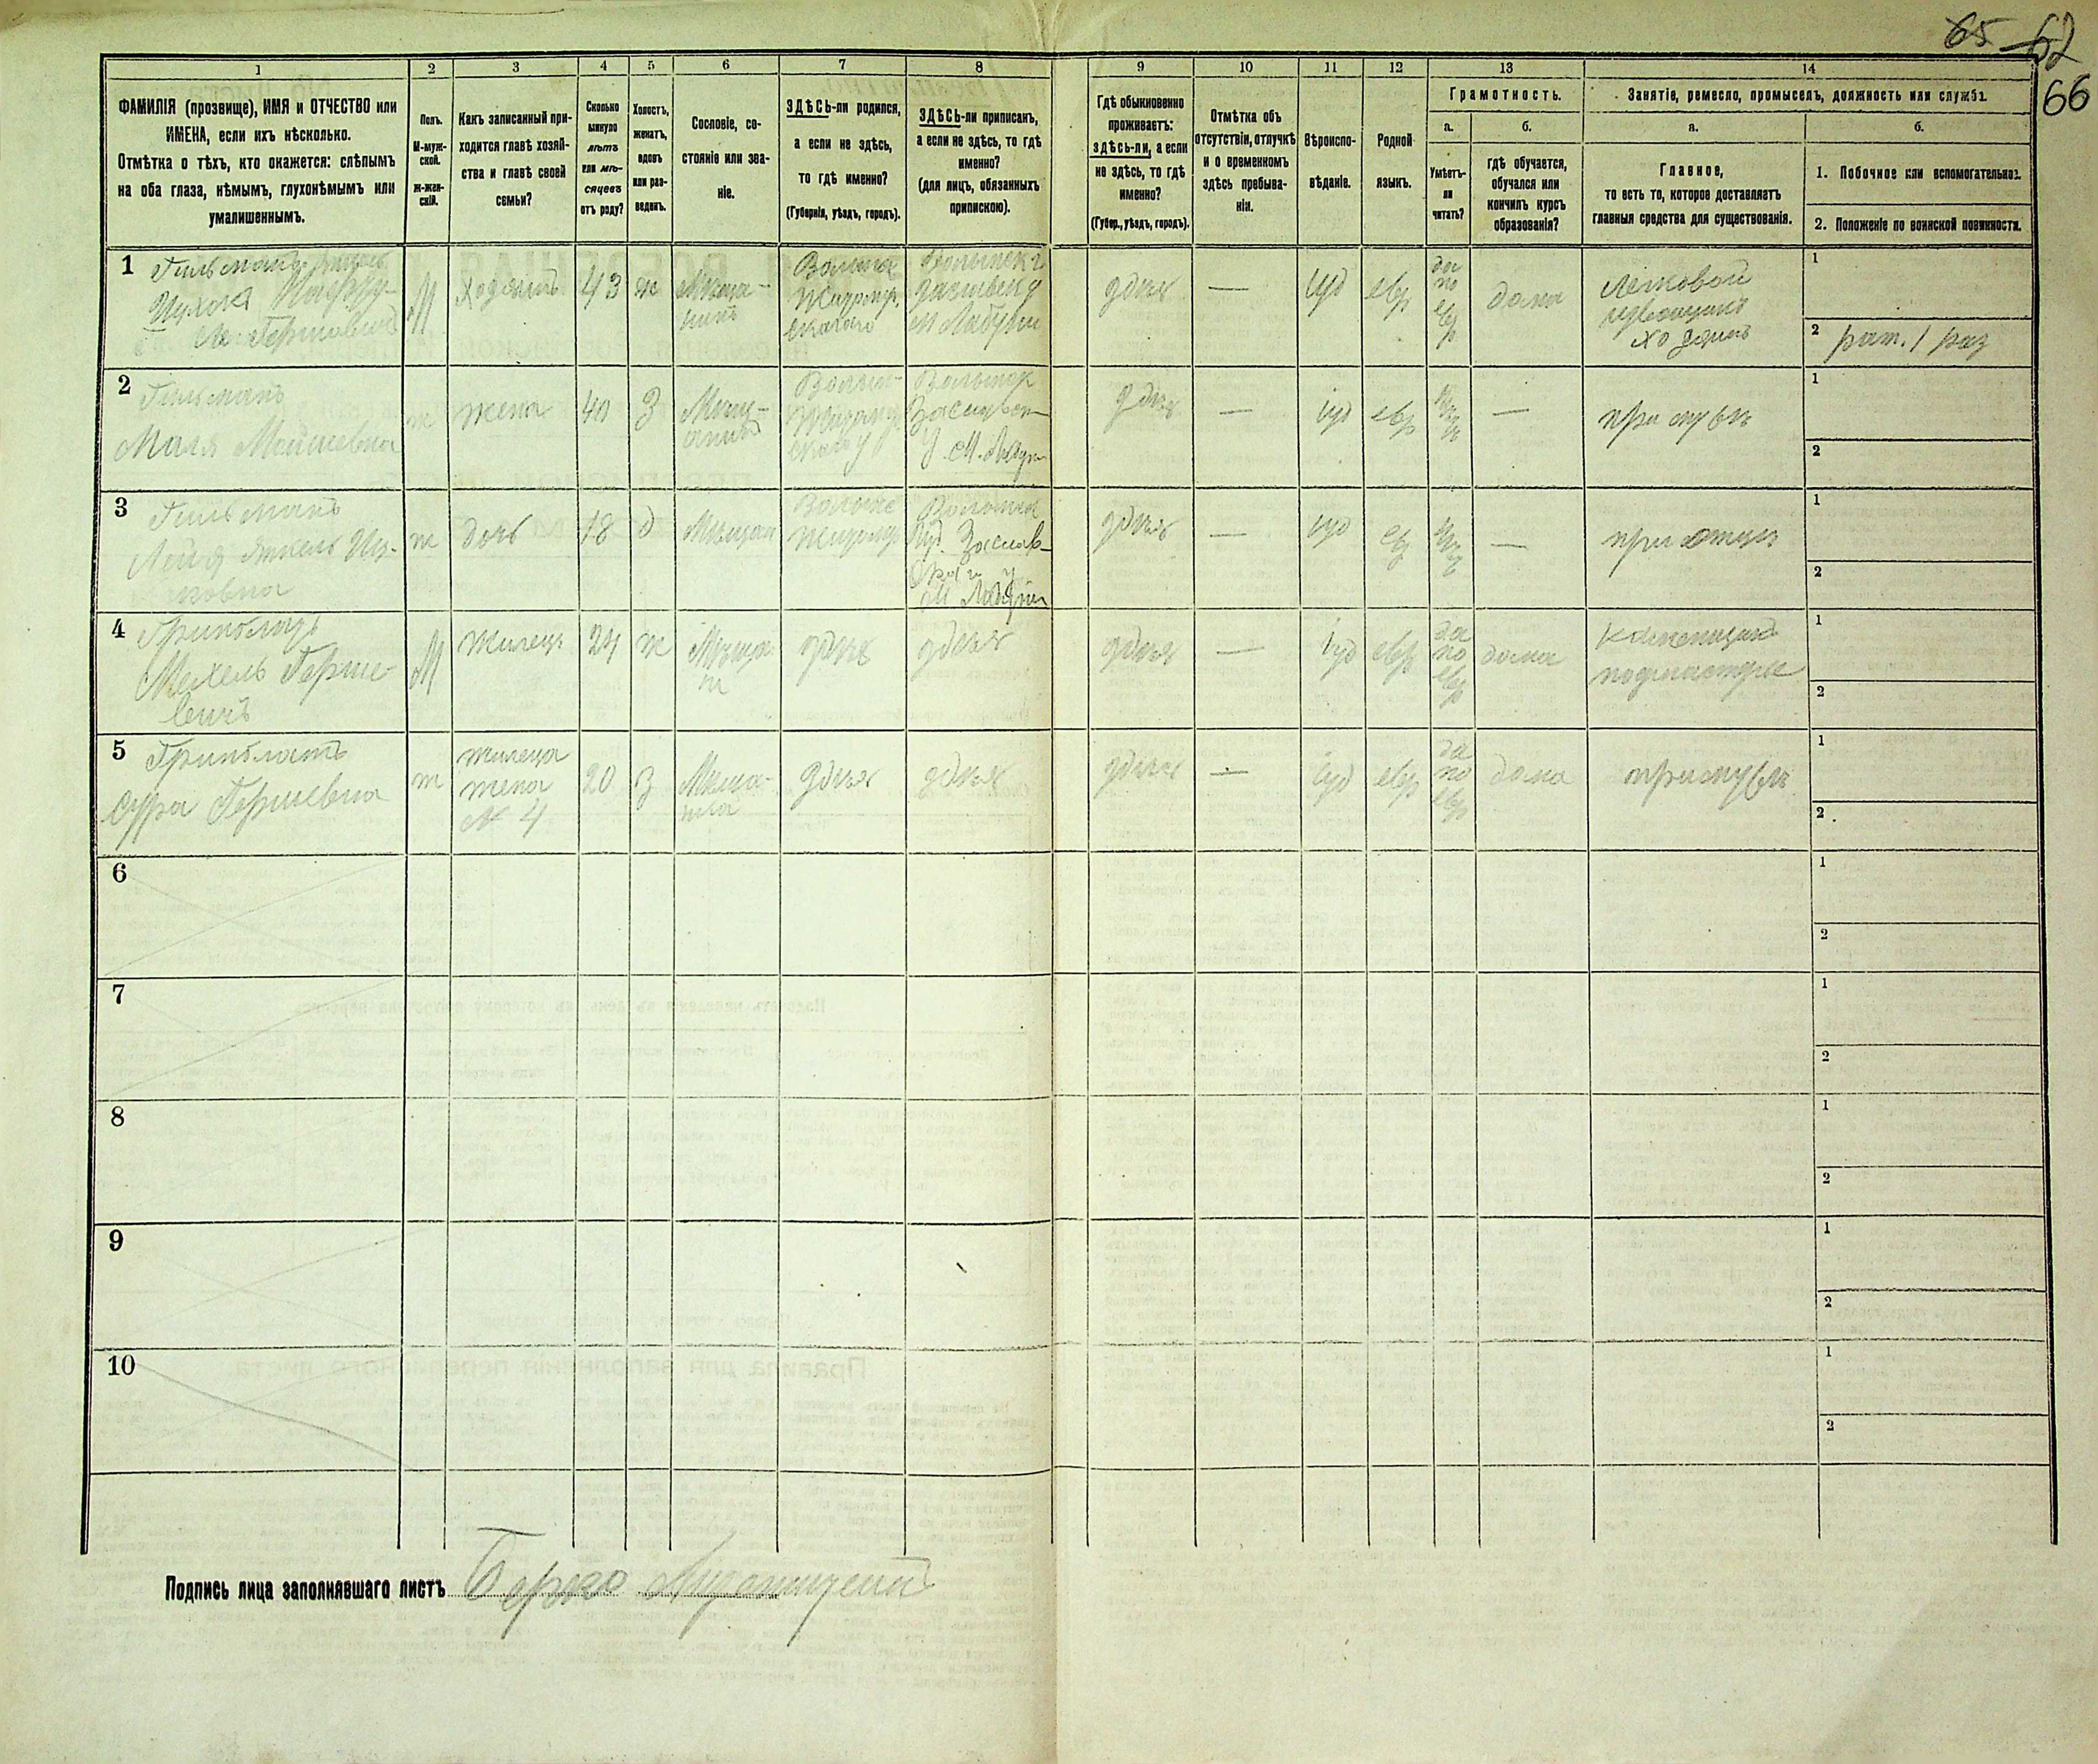 65 62
66
1 2 3 4 5 6 7 8 9 10 11 12 13 14
ФАМИЛІЯ (прозвище), ИМЯ и ОТЧЕСТВО или
ИМЕНА, если ихъ нѣсколько.
Отмѣтка о тѣхъ, кто окажется: слѣпымъ
на оба глаза, нѣмымъ, глухонѣмымъ или
умалишеннымъ.
Полъ.
М-муж-
ской.
ж-жен-
скій.
Какъ записанный при-
ходится главѣ хозяй-
ства и главѣ своей
семьи?
Сколько
минуло
лѣтъ
или мѣ-
сяцевъ
отъ роду?
Холостъ,
женатъ,
вдовъ
или раз-
веденъ.
Сословіе, со-
стояніе или зва-
ніе.
ЗДѢСЬ-ли родился,
а если не здѣсь,
то гдѣ именно?
(Губернія, уѣздъ, городъ).
ЗДѢСЬ-ли приписанъ,
а если не здѣсь, то гдѣ
именно?
(для лицъ, обязанныхъ
припискою).
Гдѣ обыкновенно
проживаетъ:
здѣсь-ли, а если
не здѣсь, то гдѣ
именно?
(Губер., уѣздъ, городъ).
Отмѣтка объ
отсутствіи, отлучкѣ
и о временномъ
здѣсь пребыва-
ніи.
Вѣроиспо-
вѣданіе.
Родной
языкъ.
Грамотность.
а.
Умѣетъ-
ли
читать?
б.
гдѣ обучается,
обучался или
кончилъ курсъ
образованія?
Занятіе, ремесло, промыселъ, должность или служба.
а.
Главное,
то есть то, которое доставляетъ
главныя средства для существованія.
б.
1. Побочное или вспомогательное.
2. Положеніе по воинской повинности.
1 Гильманъ
Ицхока
Гершовичъ
М
Хозяинъ
43
ж
Мѣща-
нинъ
Волынск
Житомир
скаго
Волынск г
Заславск у
м Лабунь
здѣсь
—
Іуд
евр
да
по
евр
дома
Легковой
извощикъ
хозяинъ
1
2 рат. 1 раз
2 Гильманъ
Маля Мошевна
ж
жена
40
З
Мѣщ-
Волын-
Житом
скаго у
Волынск
Заславск
у. м. Лабун
здѣсь
—
іуд
евр
—
при мужѣ
1
2
3 Гильманъ
Лейя Энтель Иц-
ковна
ж
дочь
18
д
Мѣщан
Волынс
Житомир
Волынск
Заслав-
скаго у
м Лабунь
здѣсь
—
іуд
евр
—
при отцѣ
1
2
4 Гринблатъ
Мехель Герше-
вичъ
М
Жилецъ
24
ж
Мѣщан
здѣсь
здѣсь
здѣсь
—
Іуд
евр
да
по
евр
дома
подмастерье
1
2
5 Гринблатъ
Сура Гершевна
ж
жилеца
жена
№ 4
20
з
Мѣща-
нка
здѣсь
здѣсь
здѣсь
—
іуд
евр
да
по
евр
дома
при мужѣ
1
2
6
1
2
7
1
2
8
1
2
9
1
2
10
1
2
Подпись лица заполнявшаго листъ Берко